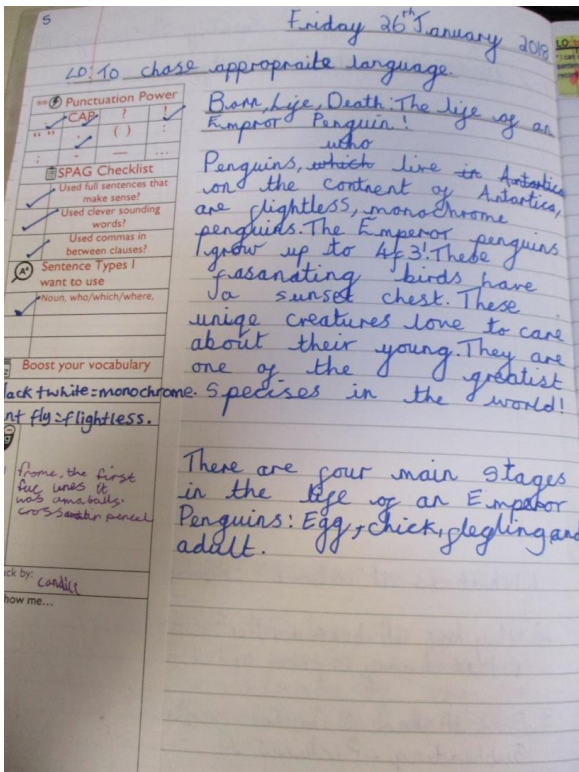 5
Friday 26th January 2018
LO: To chose appropraite language.
Punctuation Power
CAP ? !
" " , ( ) :
; - — ...
SPAG Checklist
Used full sentences that
make sense?
Used clever sounding
words?
Used commas in
between clauses?
Sentence Types I
want to use
Noun, who/which/where,
Boost your vocabulary
lack + white = monochrome.
nt fly = flightless.
frome, the first
was
pencel
ck by: Candice
how me...
Born, Life, Death: The life of an
Empror Penguin!
who
Penguins, which live in Antartica
on the contrent of Antartica,
are flightless, monochrome
penguins. The Emperor penguins
grow up to 4f3! These
fasanating birds have
a sunset chest. These
uniqe creatures love to care
about their young. They are
one of the greatist
specises in the world!
There are four main stages
in the life of an Emperor
Penguins: Egg, chick, flegling and
adult.